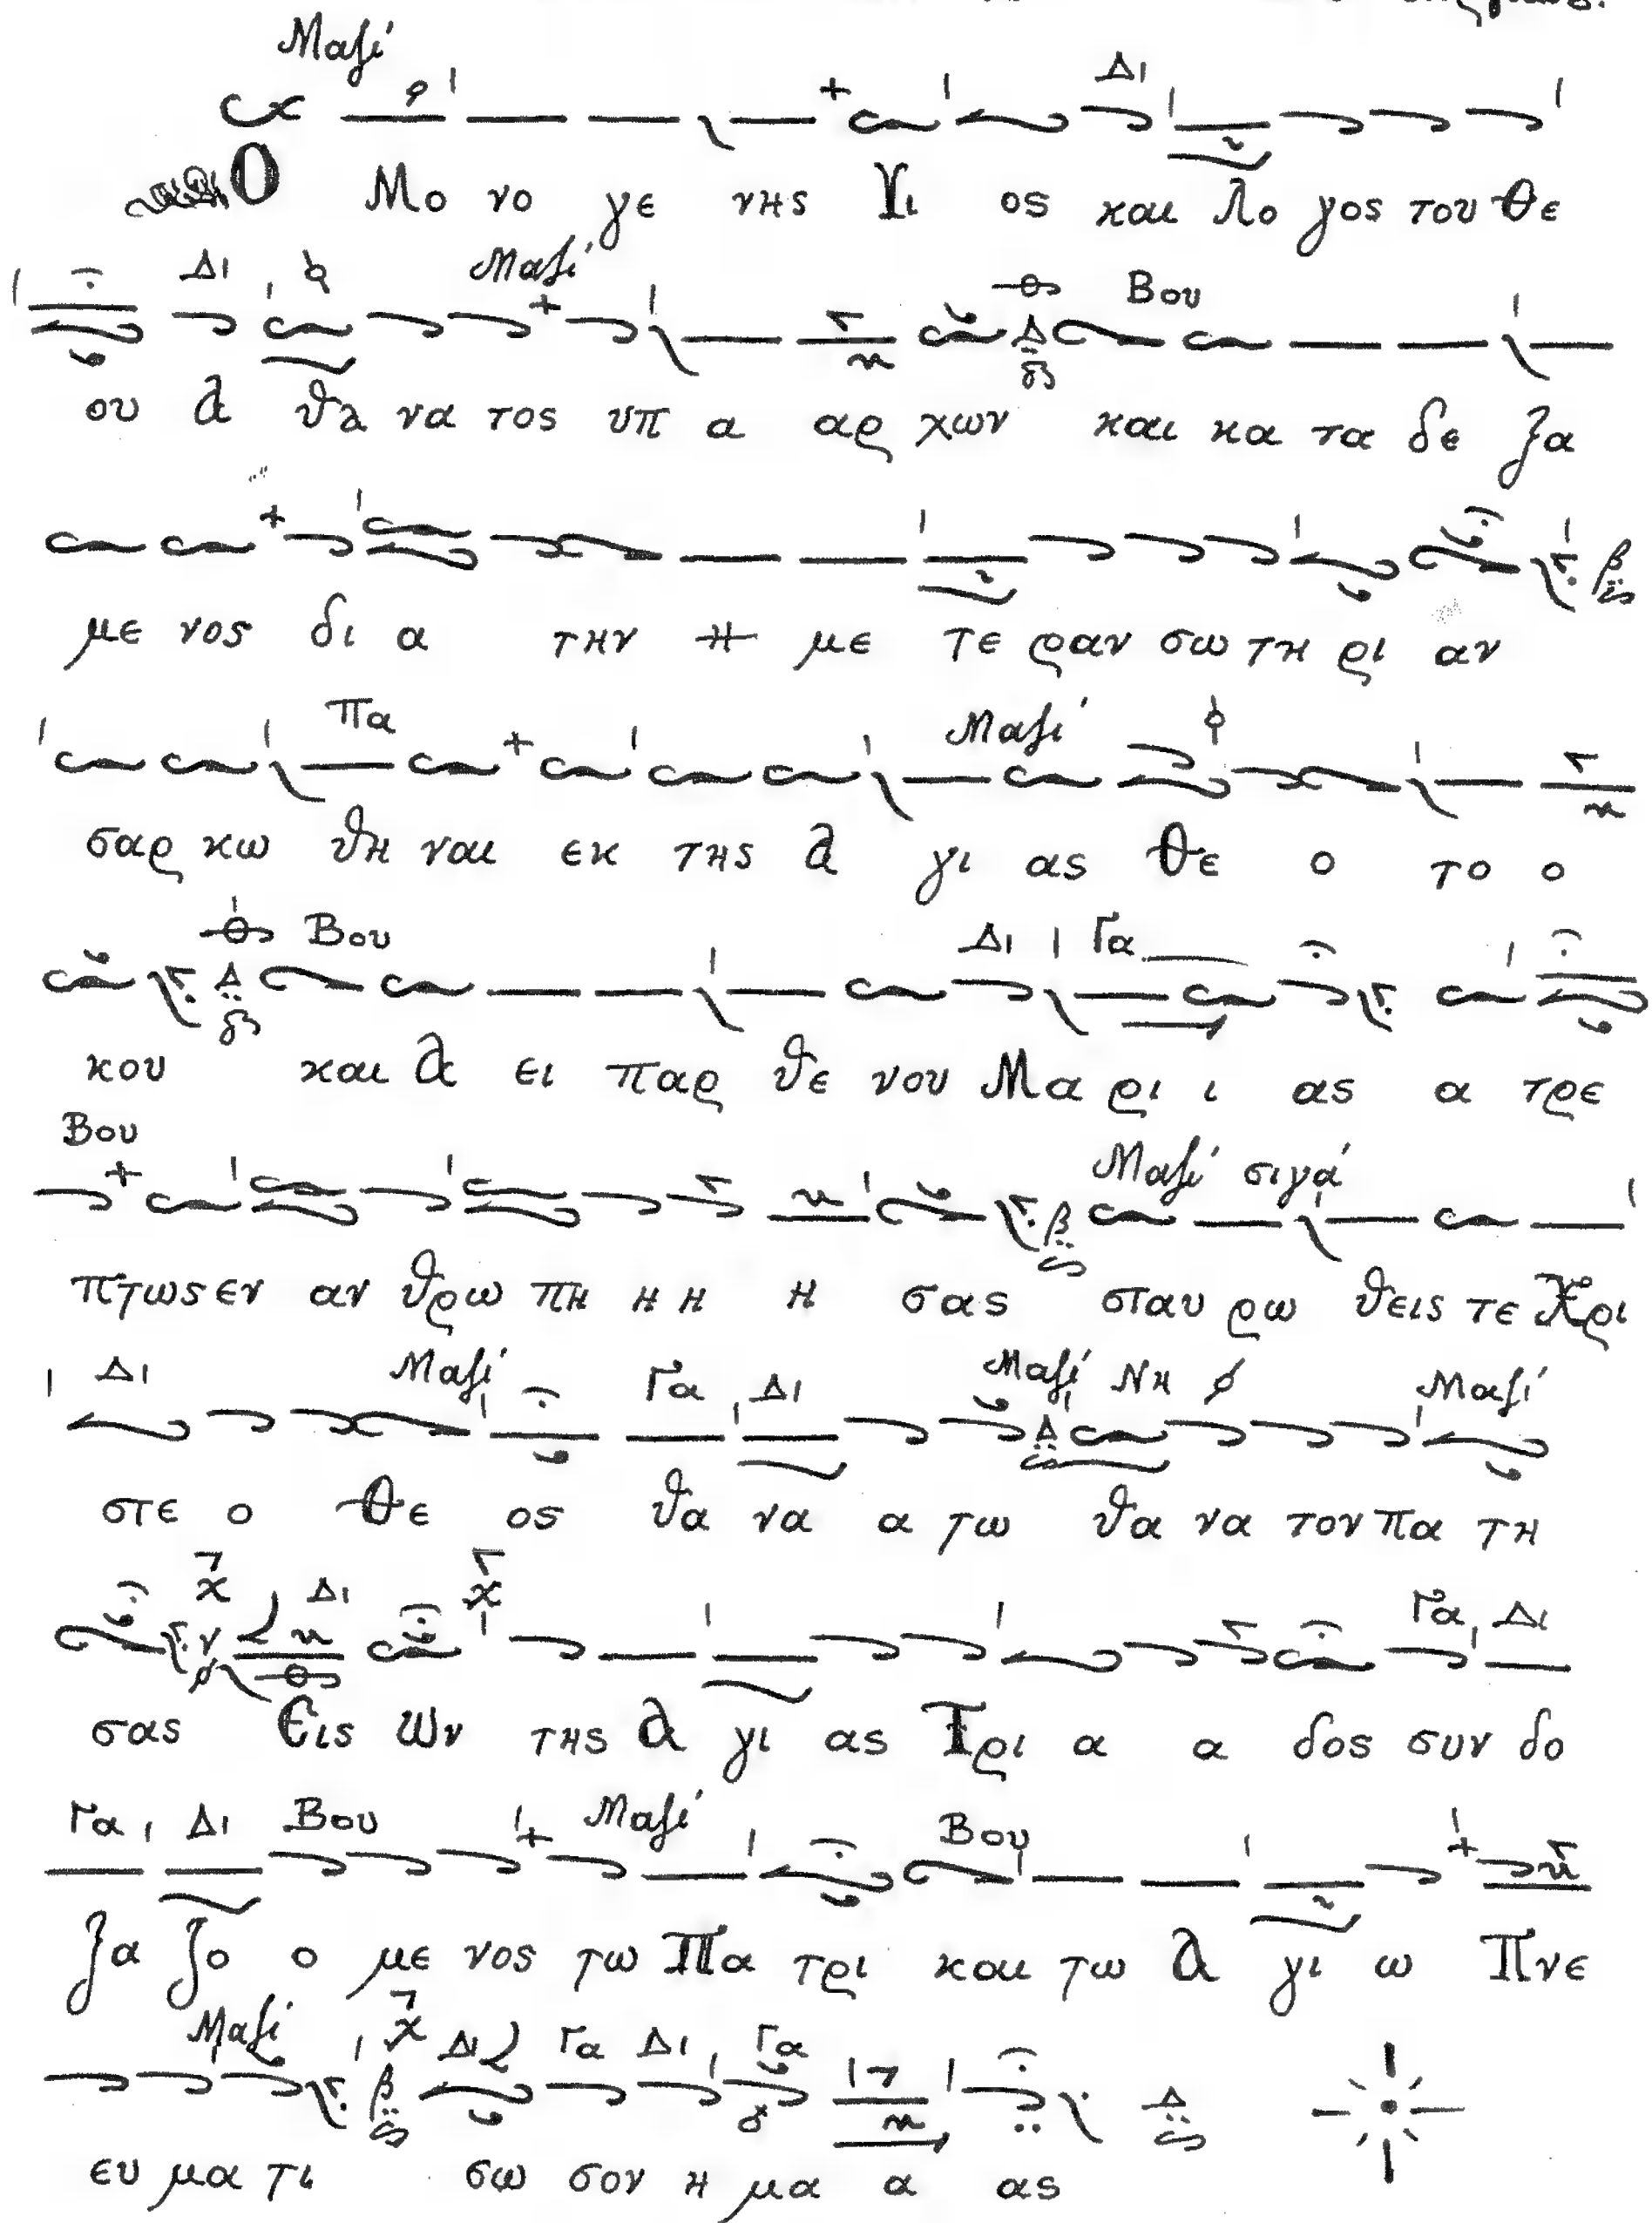 Μαζί
Δι
Ο Μο νο γε νης Υι ος και Λο γος του Θε
Δι Μαζί Βου
ου Α θα να τος υπ α αρ χων και κα τα δε ξα
με νος δι α την η με τε ραν σω τη ρι αν
Πα Μαζί
σαρ κω θη ναι εκ της Α γι ας Θε ο το ο
Βου Δι Γα
κου και Α ει παρ θε νου Μα ρι ι ας α τρε
Βου Μαζί σιγά
πτως εν αν θρω πη η η η σας σταυ ρω θεις τε Χρι
Δι Μαζί Γα Δι Μαζί Νη Μαζί
στε ο Θε ος θα να α τω θα να τον πα τη
Δι Γα Δι
σας Εις Ων της Α γι ας Τρι α α δος συν δο
Γα Δι Βου Μαζί Βου
ξα ζο ο με νος τω Πα τρι και τω Α γι ω Πνε
Μαζί Δι Γα Δι Γα
ευ μα τι σω σον η μα α ας